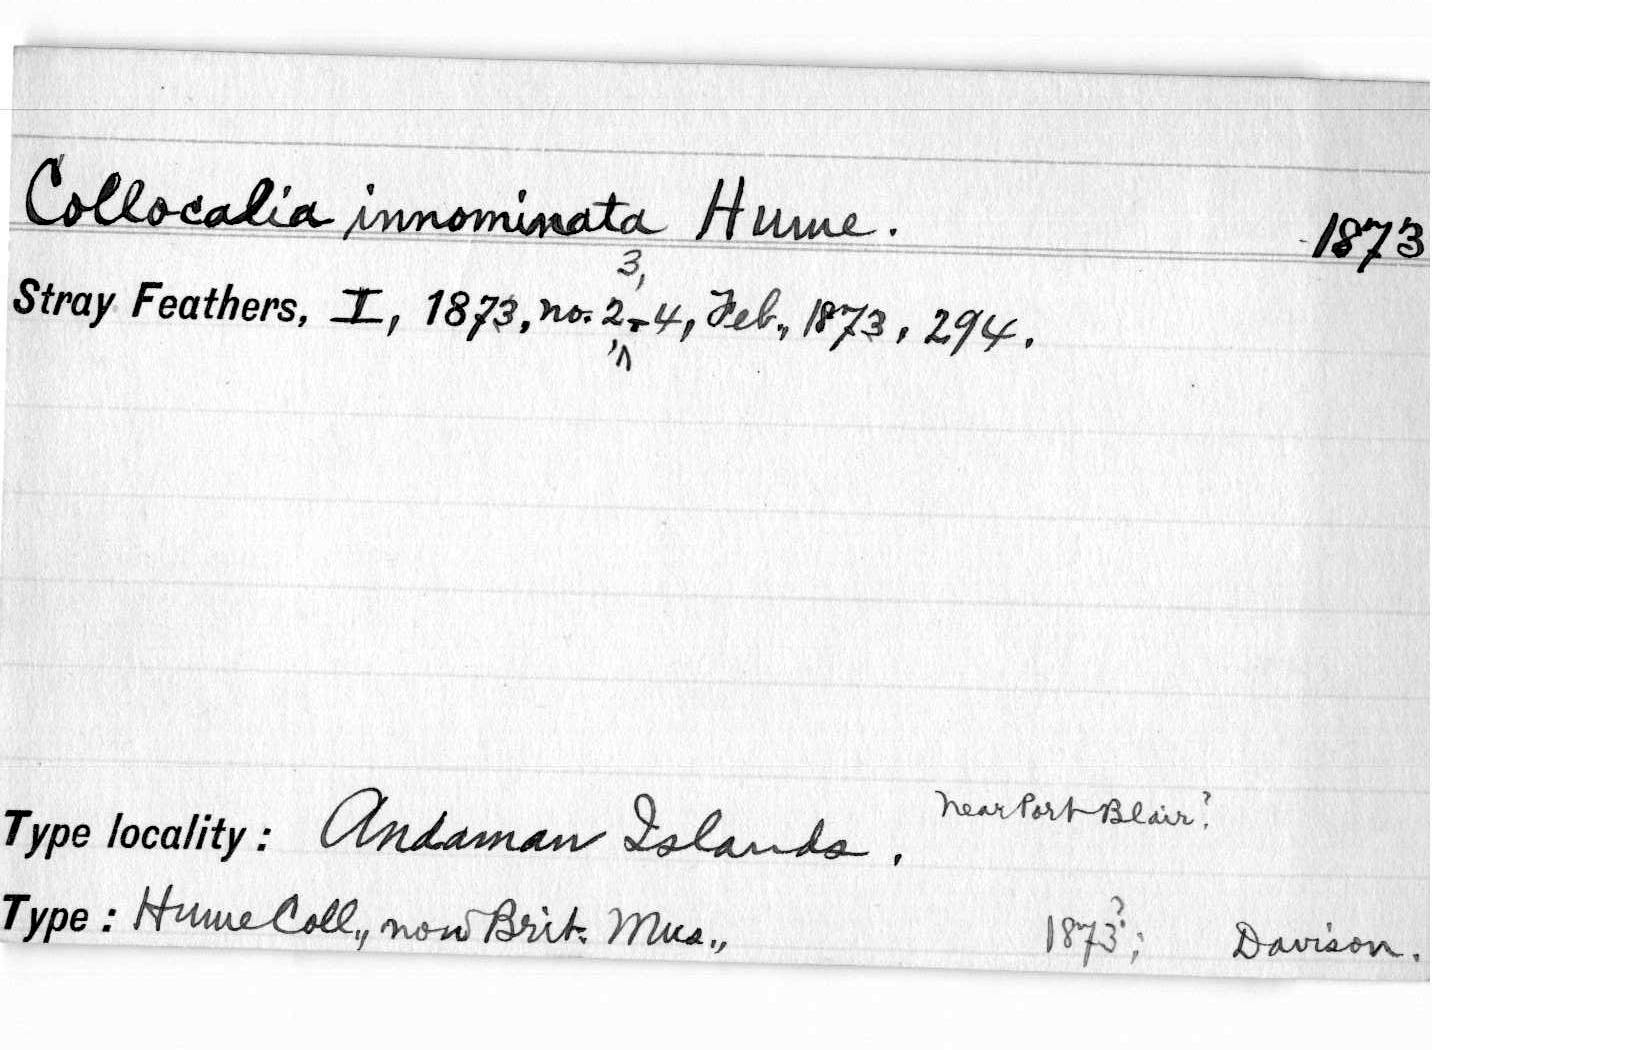 Collocalia innominata Hume. 1873
Stray Feathers, I, 1873, no. 2, 3, -4, Feb., 1873, 294.
Type locality: Andaman Islands. near Port Blair?
Type: Hume Coll., now Brit. Mus., 1873?; Davison.